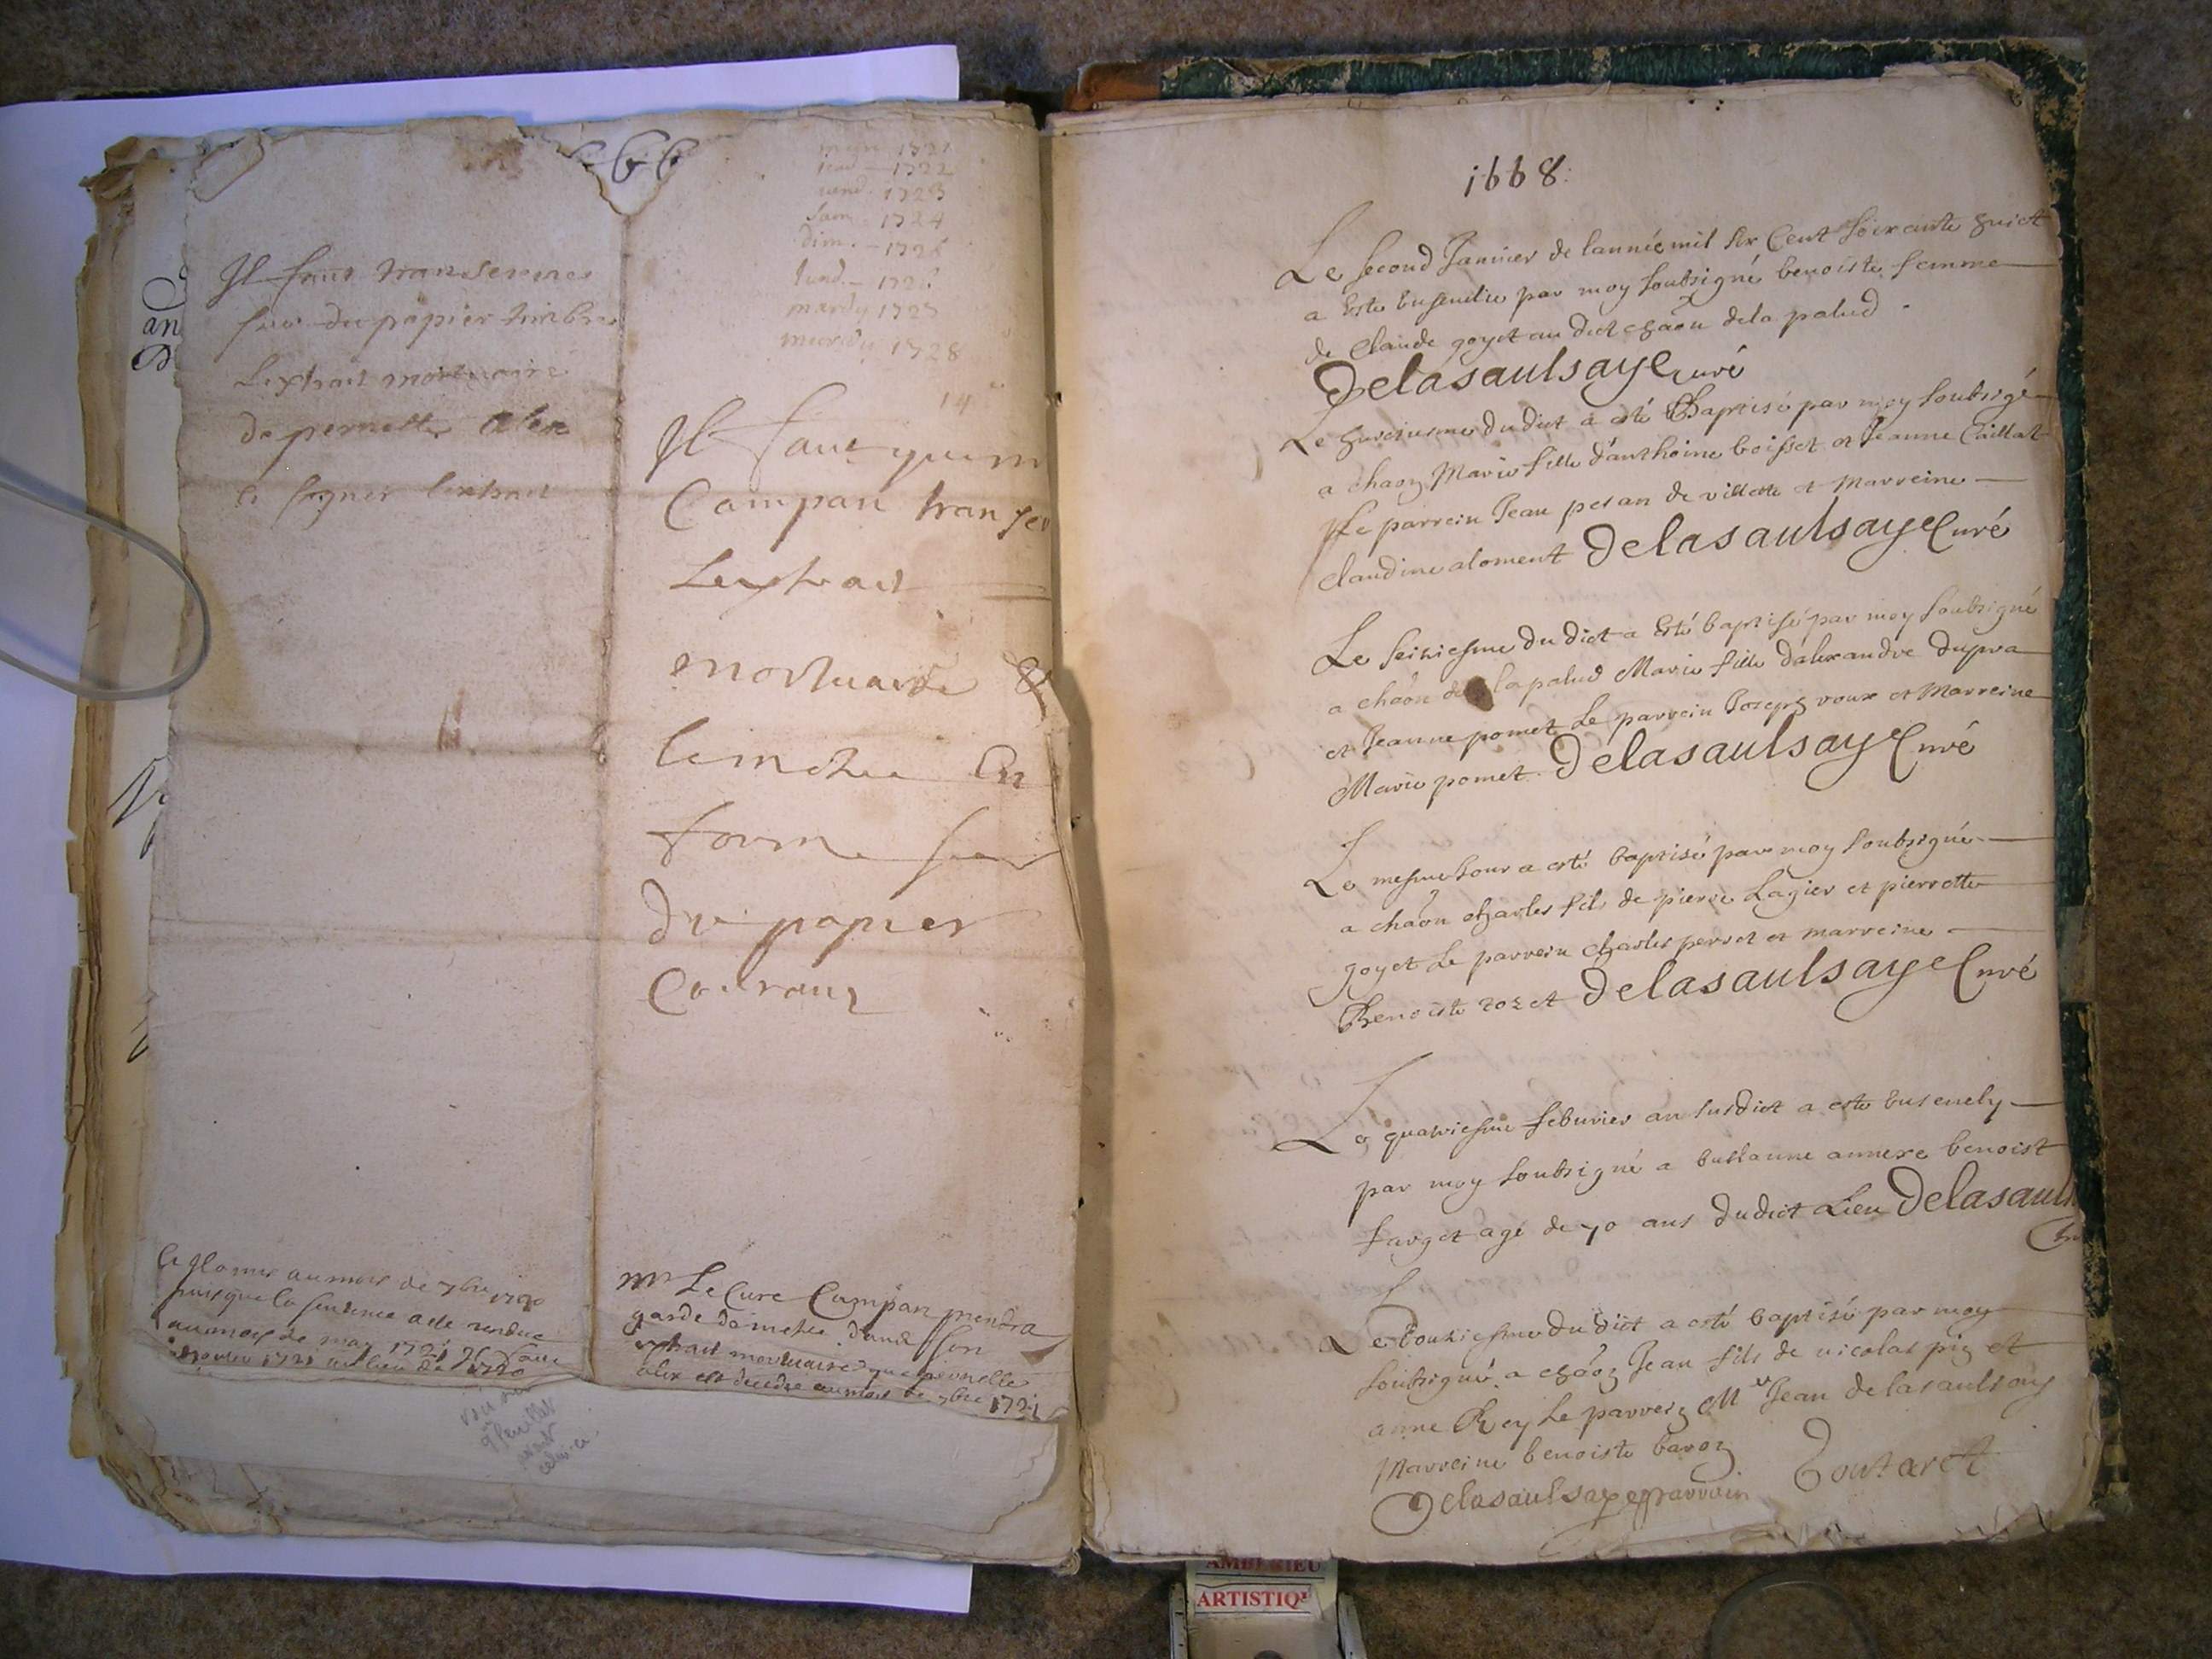 66
Il faut transcrire
sur du papier timbre
Lextrait mortuaire
de pernette alex
et signer lextrait
1721
1722
vend. 1723
sam. 1724
dim. 1725
lund. 1726
mardy 1727
1728
14
Il faut que mr
Campan
Lextrait
mortuaire &
le mettre en
forme sur
du papier
Courant
au mois de 7bre 1720
puisque la sentence a ete rendue
au mois de may 1721 Il faut
1721 au lieu de 1720
mr Le Cure Campan prendra
garde de mettre dans son
extrait mortuaire que pernette
alex est decedee au mois de 7bre 1721
feuillet
avant
celui-ci
1668
Le second Janvier de lannée mil six Cent soixante huict
a esté ensevelie par moy soubsigné benoiste femme
de Claude goyet au dict chaôn dela palud
Delasaulsaye Curé
Le dudict a esté Baptisé par moy soubsigé
a chaon Marie fille danthoine boisset et Jeanne Caillat
Le parrein Jean pesan de villette et Marreine
Claudine aloment Delasaulsaye Curé
Le seiziesme du dict a Esté baptisé par moy soubsigné
a chaôn de lapalud Marie fille dalexandre dupra
et Jeanne pomet Le parrein Joseph roux et Marreine
Marie pomet Delasaulsaye Curé
Le mesme Jour a esté baptisé par moy soubsigné
a chaôn charles fils de pierre Lagier et pierrette
goyet Le parrein charles perret et marreine
Benoiste rozet Delasaulsaye Curé
Le febvrier an susdict a esté ensevely
par moy soubsigné a annexe benoist
farget agé de 70 ans dudict Lieu Delasauls
Le douziesme du dict a esté baptisé par moy
soubsigné a chaôn Jean fils de nicolas pin et
anne Rey Le parrein Mre Jean delasaulsay
Marreine benoiste baron
Delasaulsaye parrain